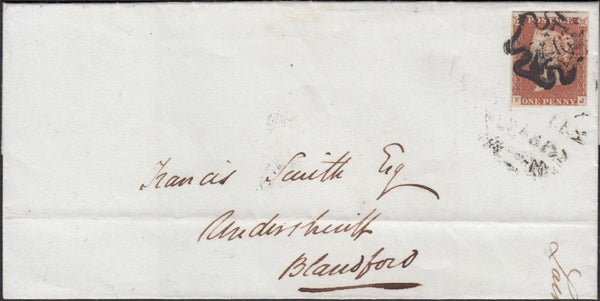 POSTAGE
ONE PENNY
J
Francis Smith Esq
Undersheriff
Blandford